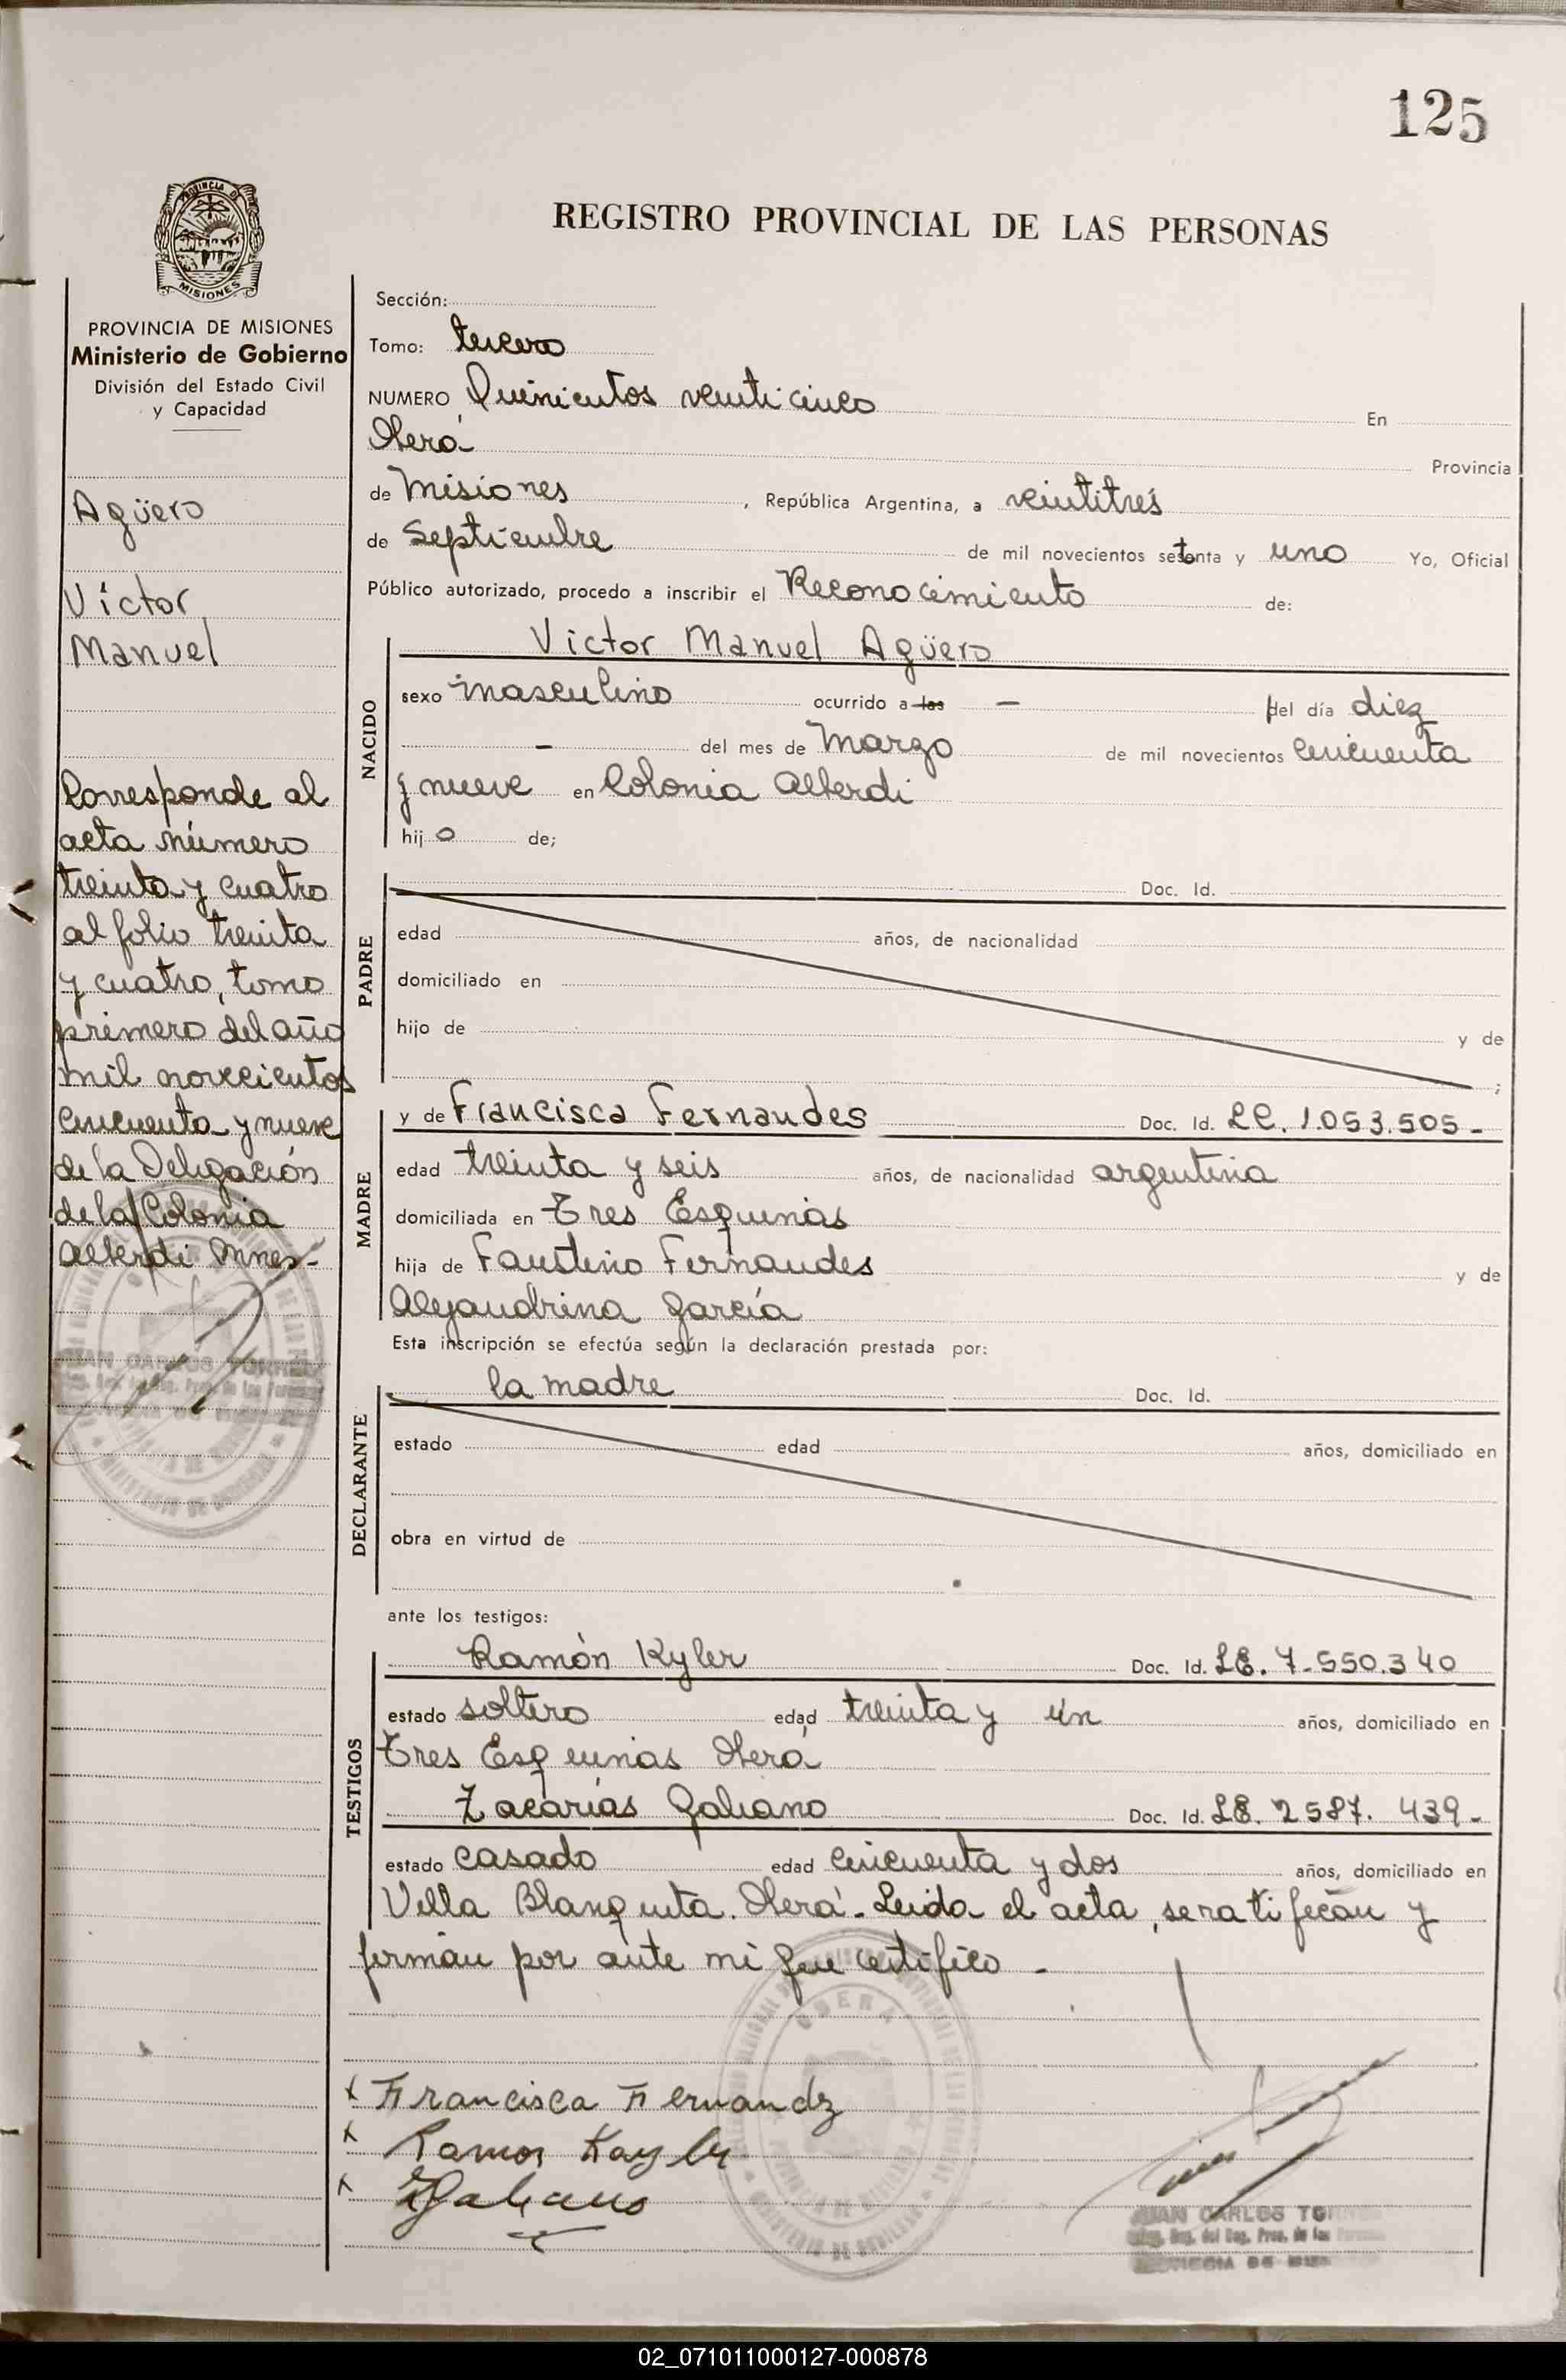 125
PROVINCIA DE
MISIONES
REGISTRO PROVINCIAL DE LAS PERSONAS
PROVINCIA DE MISIONES
Ministerio de Gobierno
División del Estado Civil
y Capacidad
Agüero
Víctor
Manuel
Corresponde al
acta número
treinta y cuatro
al folio treinta
y cuatro, tomo
primero del año
mil novecientos
cincuenta y nueve
de la Delegación
de la Colonia
Alberdi Mnes-
JUAN CARLOS
Sección:
Tomo: tercero
NUMERO Quinientos veinticinco En
Oberá Provincia
de Misiones, República Argentina, a veintitrés
de Septiembre de mil novecientos setenta y uno Yo, Oficial
Público autorizado, procedo a inscribir el Reconocimiento de:
NACIDO
Victor Manuel Agüero
sexo masculino ocurrido a las - del día diez
- del mes de Marzo de mil novecientos cincuenta
y nueve en Colonia Alberdi
hijo de;
PADRE
Doc. Id.
edad años, de nacionalidad
domiciliado en
hijo de y de
;
MADRE
y de Francisca Fernandes Doc. Id. LC. 1.053.505-
edad treinta y seis años, de nacionalidad argentina
domiciliada en Tres Esquinas
hija de Faustino Fernandes y de
Alejandrina García
Esta inscripción se efectúa según la declaración prestada por:
DECLARANTE
la madre Doc. Id.
estado edad años, domiciliado en
obra en virtud de
ante los testigos:
TESTIGOS
Ramón Kyler Doc. Id. LE. 7.550.340
estado soltero edad treinta y un años, domiciliado en
Tres Esquinas Oberá
Zacarías Galiano Doc. Id. LE. 2587.439-
estado casado edad cincuenta y dos años, domiciliado en
Villa Blanquita. Oberá- Leida el acta, se ratifican y
firman por ante mi que certifico -
OBERA
x Francisca Fernandz
x Ramon Kayler
x ZGaliano
JUAN CARLOS
02_071011000127-000878